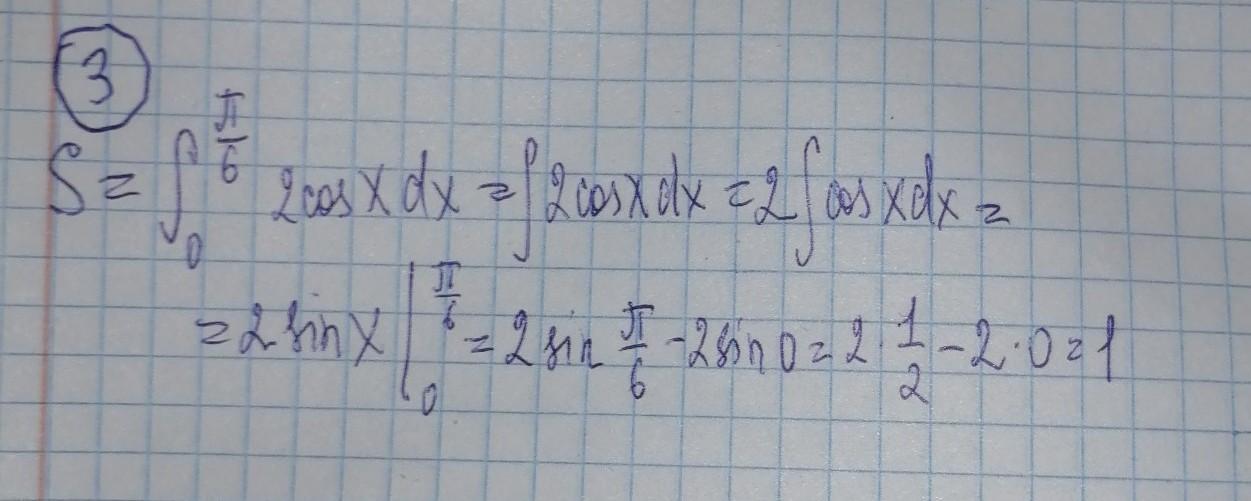 3
S = ∫₀^{π/6} 2cosx dx = ∫2cosxdx = 2∫cosxdx =
= 2 sinx |₀^{π/6} = 2 sin π/6 - 2sin0 = 2·1/2 - 2·0 = 1